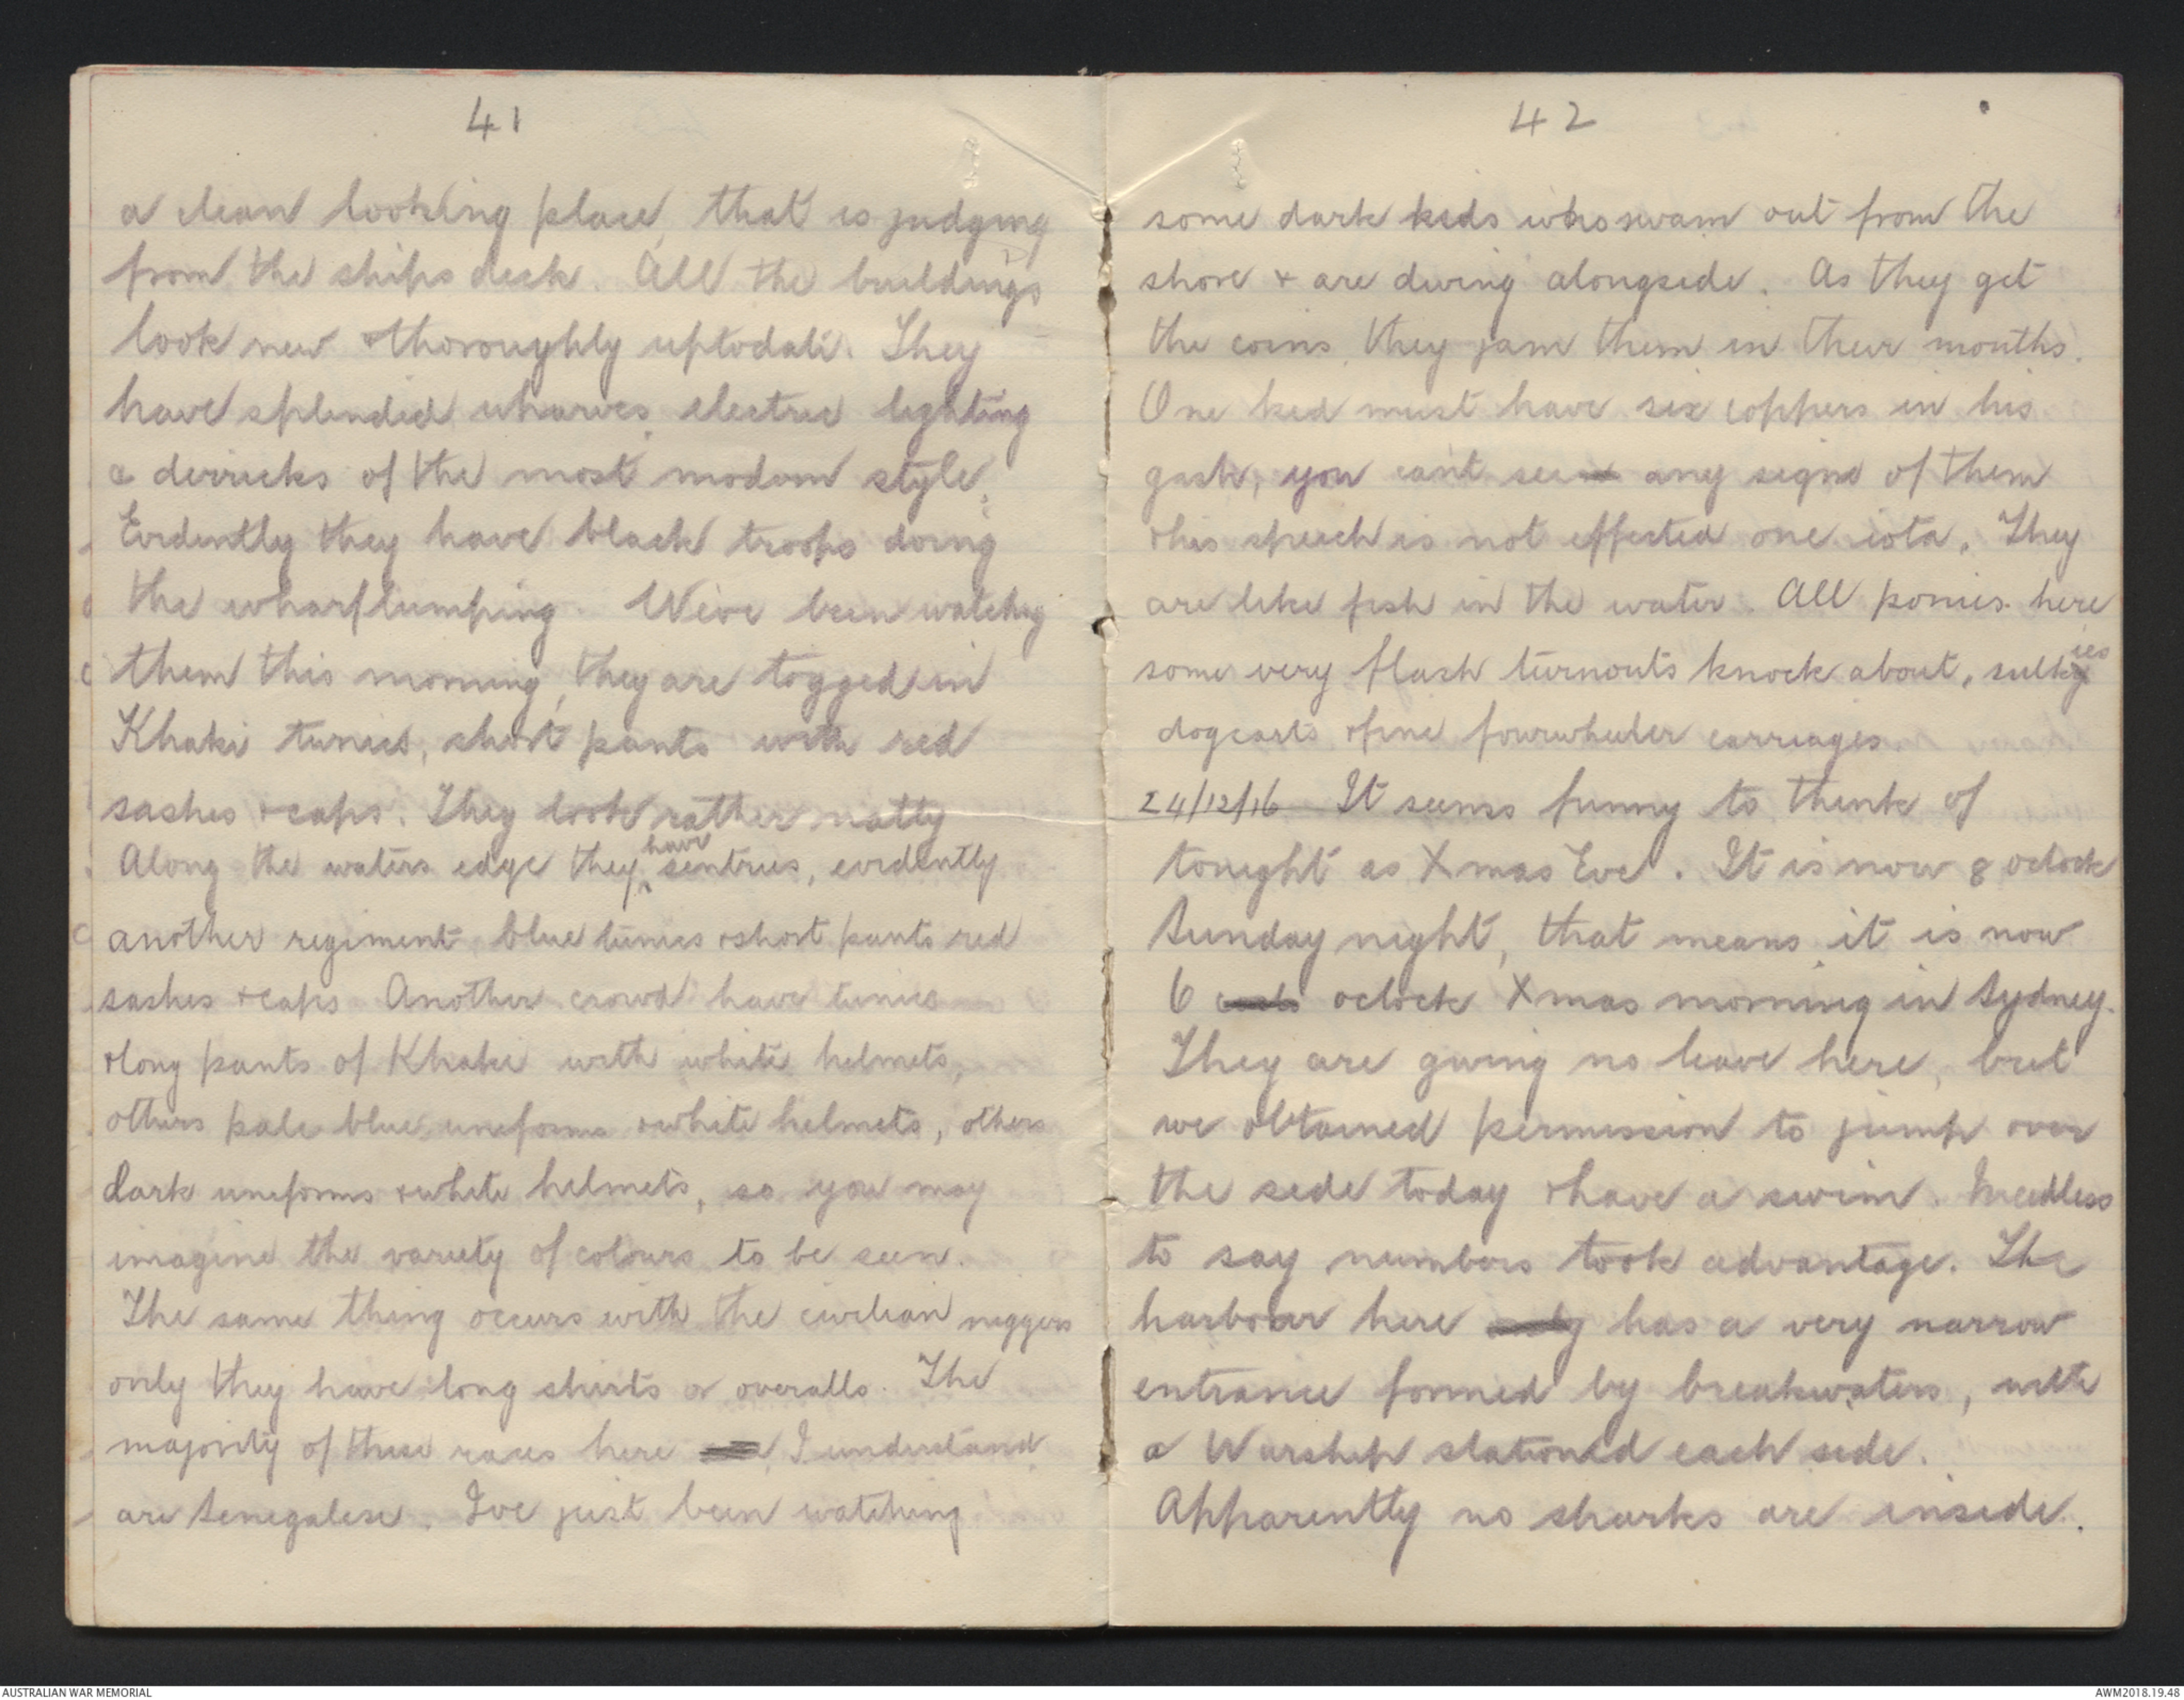 41
a clean looking place, that is judging
from the ships deck. All the buildings
look new & thoroughly uptodate. They
have splendid wharves, electric lighting
& derricks of the most modern style.
Evidently they have black troops doing
the wharflumping. We've been watching
them this morning, they are togged in
Khaki tunics, short pants with red
sashes & caps. They look rather natty
Along the waters edge they have sentries, evidently
another regiment, blue tunics & short pants red
sashes & caps Another crowd have tunics
& long pants of Khaki with white helmets,
others pale blue uniforms & white helmets, others
dark uniforms & white helmets, so you may
imagine the variety of colours to be seen.
The same thing occurs with the civilian niggers
only they have long shirts or overalls. The
majority of these races here I understand
are Senegalese. I've just been watching
42
some dark kids who swam out from the
shore & are diving alongside. As they get
the coins, they jam them in their mouths.
One kid must have six coppers in his
gash, you can't see any signs of them
& his speech is not effected one iota. They
are like fish in the water. All ponies here
some very flash turnouts knock about, sulkies
dogcarts & fine fourwheeler carriages.
24/12/16 It seems funny to think of
tonight as Xmas Eve. It is now 8 oclock
Sunday night, that means it is now
6 oclock Xmas morning in Sydney.
They are giving no leave here, but
we obtained permission to jump over
the side today & have a swim. Needless
to say numbers took advantage. The
harbour here has a very narrow
entrance formed by breakwaters, with
a Warship stationed each side.
Apparently no sharks are inside.
AUSTRALIAN WAR MEMORIAL
AWM2018.19.48